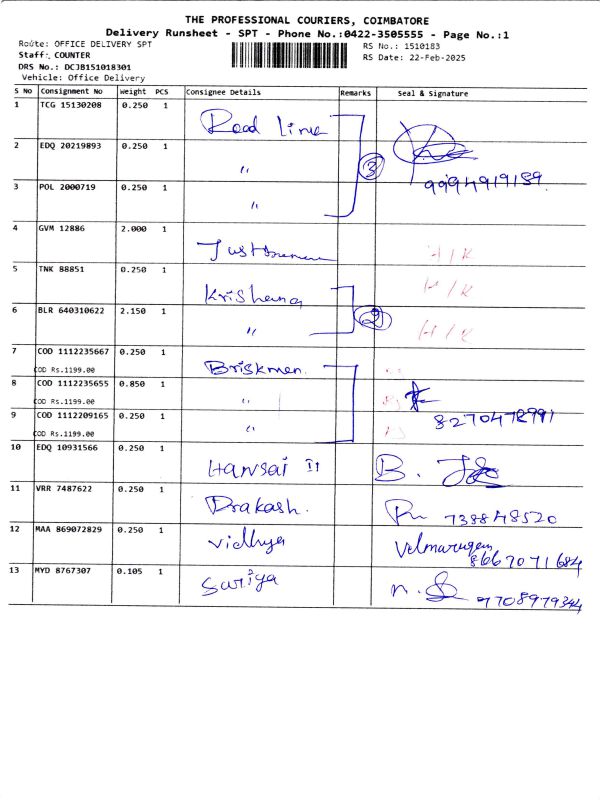 THE PROFESSIONAL COURIERS, COIMBATORE
Delivery Runsheet - SPT - Phone No.:0422-3505555 - Page No.:1
Route: OFFICE DELIVERY SPT
RS No.: 1510183
Staff: COUNTER
RS Date: 22-Feb-2025
DRS No.: DCJB151018301
Vehicle: Office Delivery
S No Consignment No Weight PCS Consignee Details Remarks Seal & Signature
1 TCG 15130208 0.250 1 Read Line
2 EDQ 20219893 0.250 1 " 3
9994919189
3 POL 2000719 0.250 1 "
4 GVM 12886 2.000 1 H/K
5 TNK 88851 0.250 1 Krishana H/K
6 BLR 640310622 2.150 1 " 2 H/K
7 COD 1112235667 0.250 1 Briskmen
COD Rs.1199.00
8 COD 1112235655 0.850 1 "
COD Rs.1199.00
9 COD 1112209165 0.250 1 " 8270472991
COD Rs.1199.00
10 EDQ 10931566 0.250 1 Hansai II B.
11 VRR 7487622 0.250 1 Prakash. 738848520
12 MAA 869072829 0.250 1 Vidhya Velmurugan
8667071684
13 MYD 8767307 0.105 1 Suriya n. 9708979344